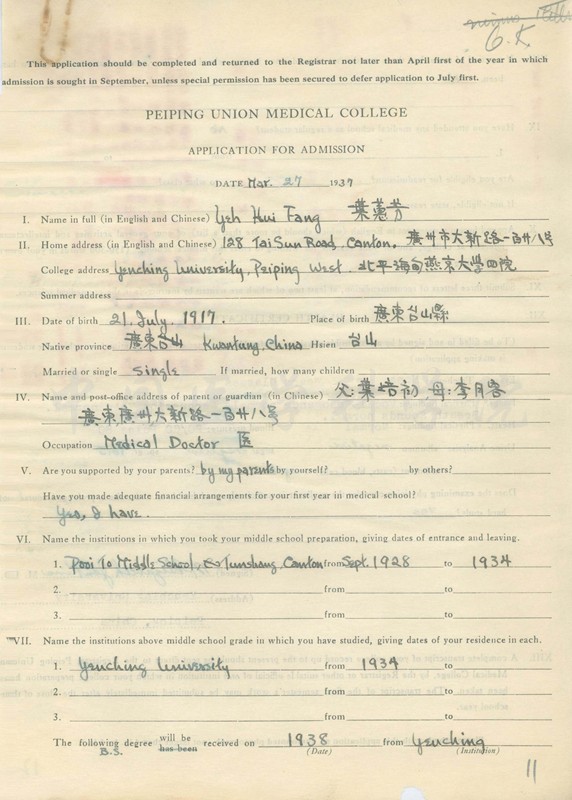 G.K.
This application should be completed and returned to the Registrar not later than April first of the year in which
admission is sought in September, unless special permission has been secured to defer application to July first.
PEIPING UNION MEDICAL COLLEGE
APPLICATION FOR ADMISSION
DATE Mar. 27 1937
I. Name in full (in English and Chinese) Yeh Hui Fang 葉蕙芳
II. Home address (in English and Chinese) 128 Tai Sun Road, Canton. 廣州市大新路一百廿八号
College address Yenching University, Peiping West. 北平海甸燕京大學四院
Summer address
III. Date of birth 21. July. 1917. Place of birth 廣東台山縣
Native province 廣東台山 Kwantung, China Hsien 台山
Married or single single If married, how many children
IV. Name and post-office address of parent or guardian (in Chinese) 父:葉培初,母:李月容
廣東廣州大新路一百廿八号
Occupation Medical Doctor 医
V. Are you supported by your parents? by my parents by yourself? by others?
Have you made adequate financial arrangements for your first year in medical school?
Yes, I have.
VI. Name the institutions in which you took your middle school preparation, giving dates of entrance and leaving.
1. Pooi To Middle School Tunshang, Canton from Sept. 1928 to 1934
2. from to
3. from to
VII. Name the institutions above middle school grade in which you have studied, giving dates of your residence in each.
1. Yenching University from 1934 to
2. from to
3. from to
The following degree will be has been received on 1938 from Yenching
B.S. (Date) (Institution)
11